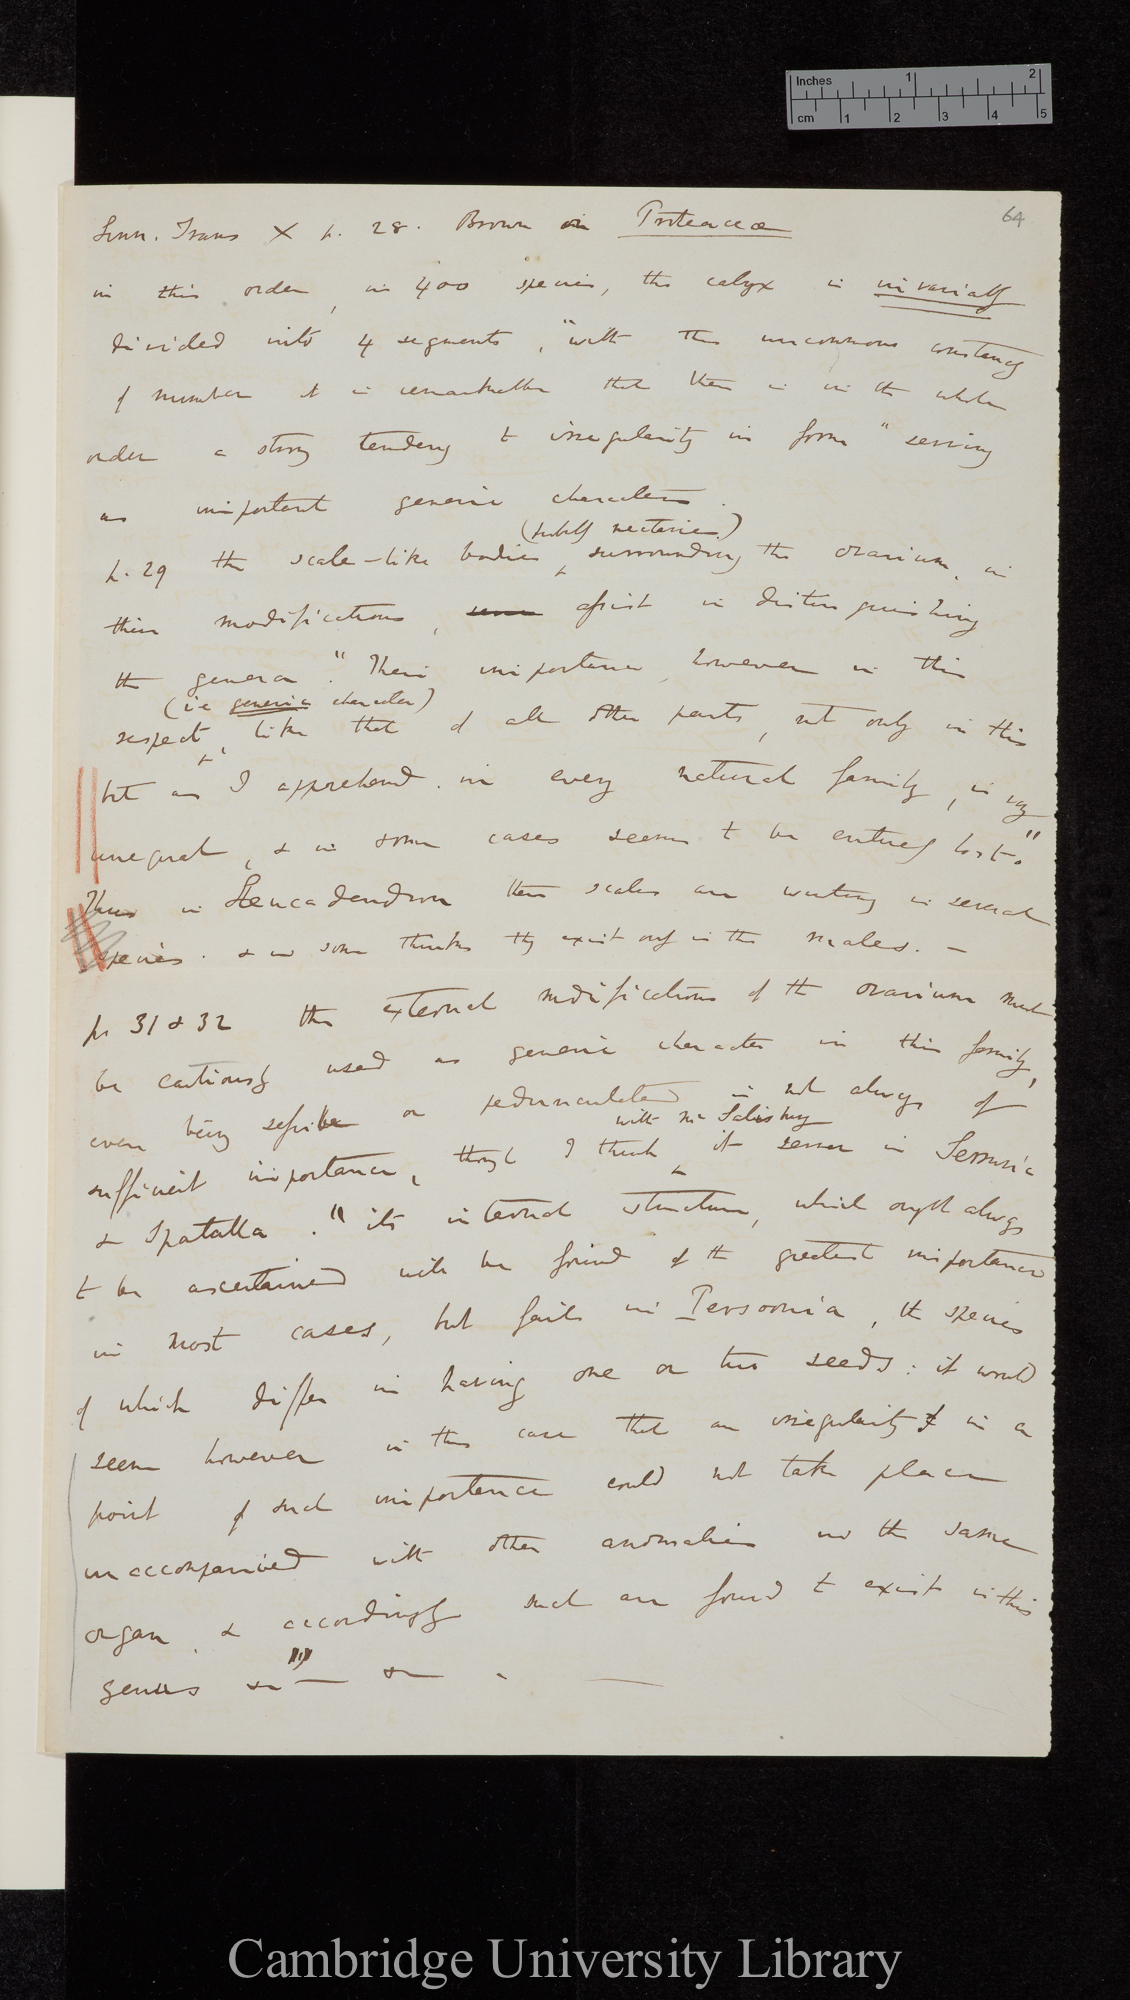 Inches 1 2
cm 1 2 3 4 5
64
Linn. Trans X p. 28. Brown on Proteaceæ
in this order, in 400 species, the calyx is invariably
divided into 4 segments, "with this uncommon constancy
of number it is remarkable that there is in the whole
order a strong tendency to irregularity in form" serving
as important generic characters.
(probably nectaries)
p. 29 the scale-like bodies surrounding the ovarium, in
their modifications, assist in distinguishing
the genera. "Their importance, however in this
(ie generic character)
respect, like that of all other parts, not only in this
but as I apprehend in every natural family, is very
unequal, & in some cases seems to be entirely lost."
Thus in Leucadendron these scales are wanting in several
species. & in some thinks they exist only in the males. —
p. 31 & 32 the external modifications of the ovarium must
be cautiously used as generic character in this family,
even being sessile or pedunculated is not always of
with Mr Salisbury
sufficient importance, though I think it serves in Serruria
& Spatalla. "its internal structure, which ought always
to be ascertained will be found of the greatest importance
in most cases, but fails in Persoonia, the species
of which differ in having one or two seeds: it would
seem however in this case that an irregularity in a
point of such importance could not take place
unaccompanied with other anomalies in the same
organ, & accordingly such are found to exist in this
genus &c" — &c —
Cambridge University Library